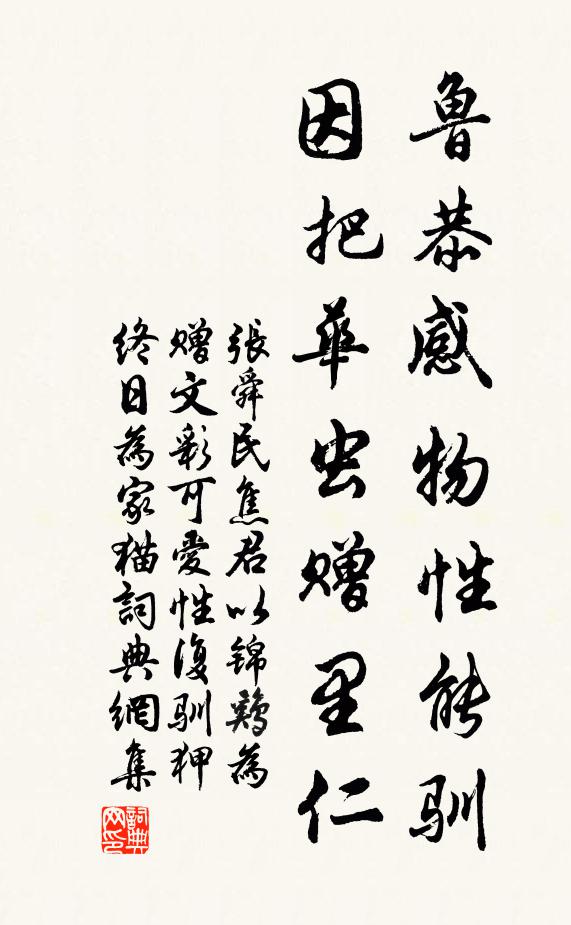 鲁恭感物性能驯
因把华虫赠里仁
張舜民焦君以锦鷄為
赠文彩可愛性復驯狎
終日為家猫詞典網集
詞典网印